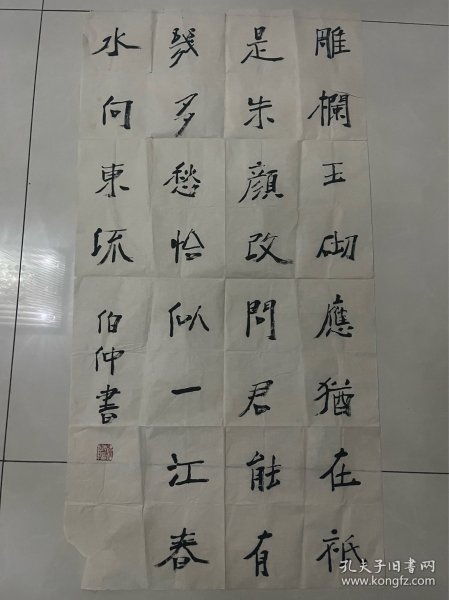 雕欄玉砌應猶在祇
是朱顔改問君能有
幾多愁恰似一江春
水向東流
伯仲書
孔夫子旧书网
www.kongfz.com